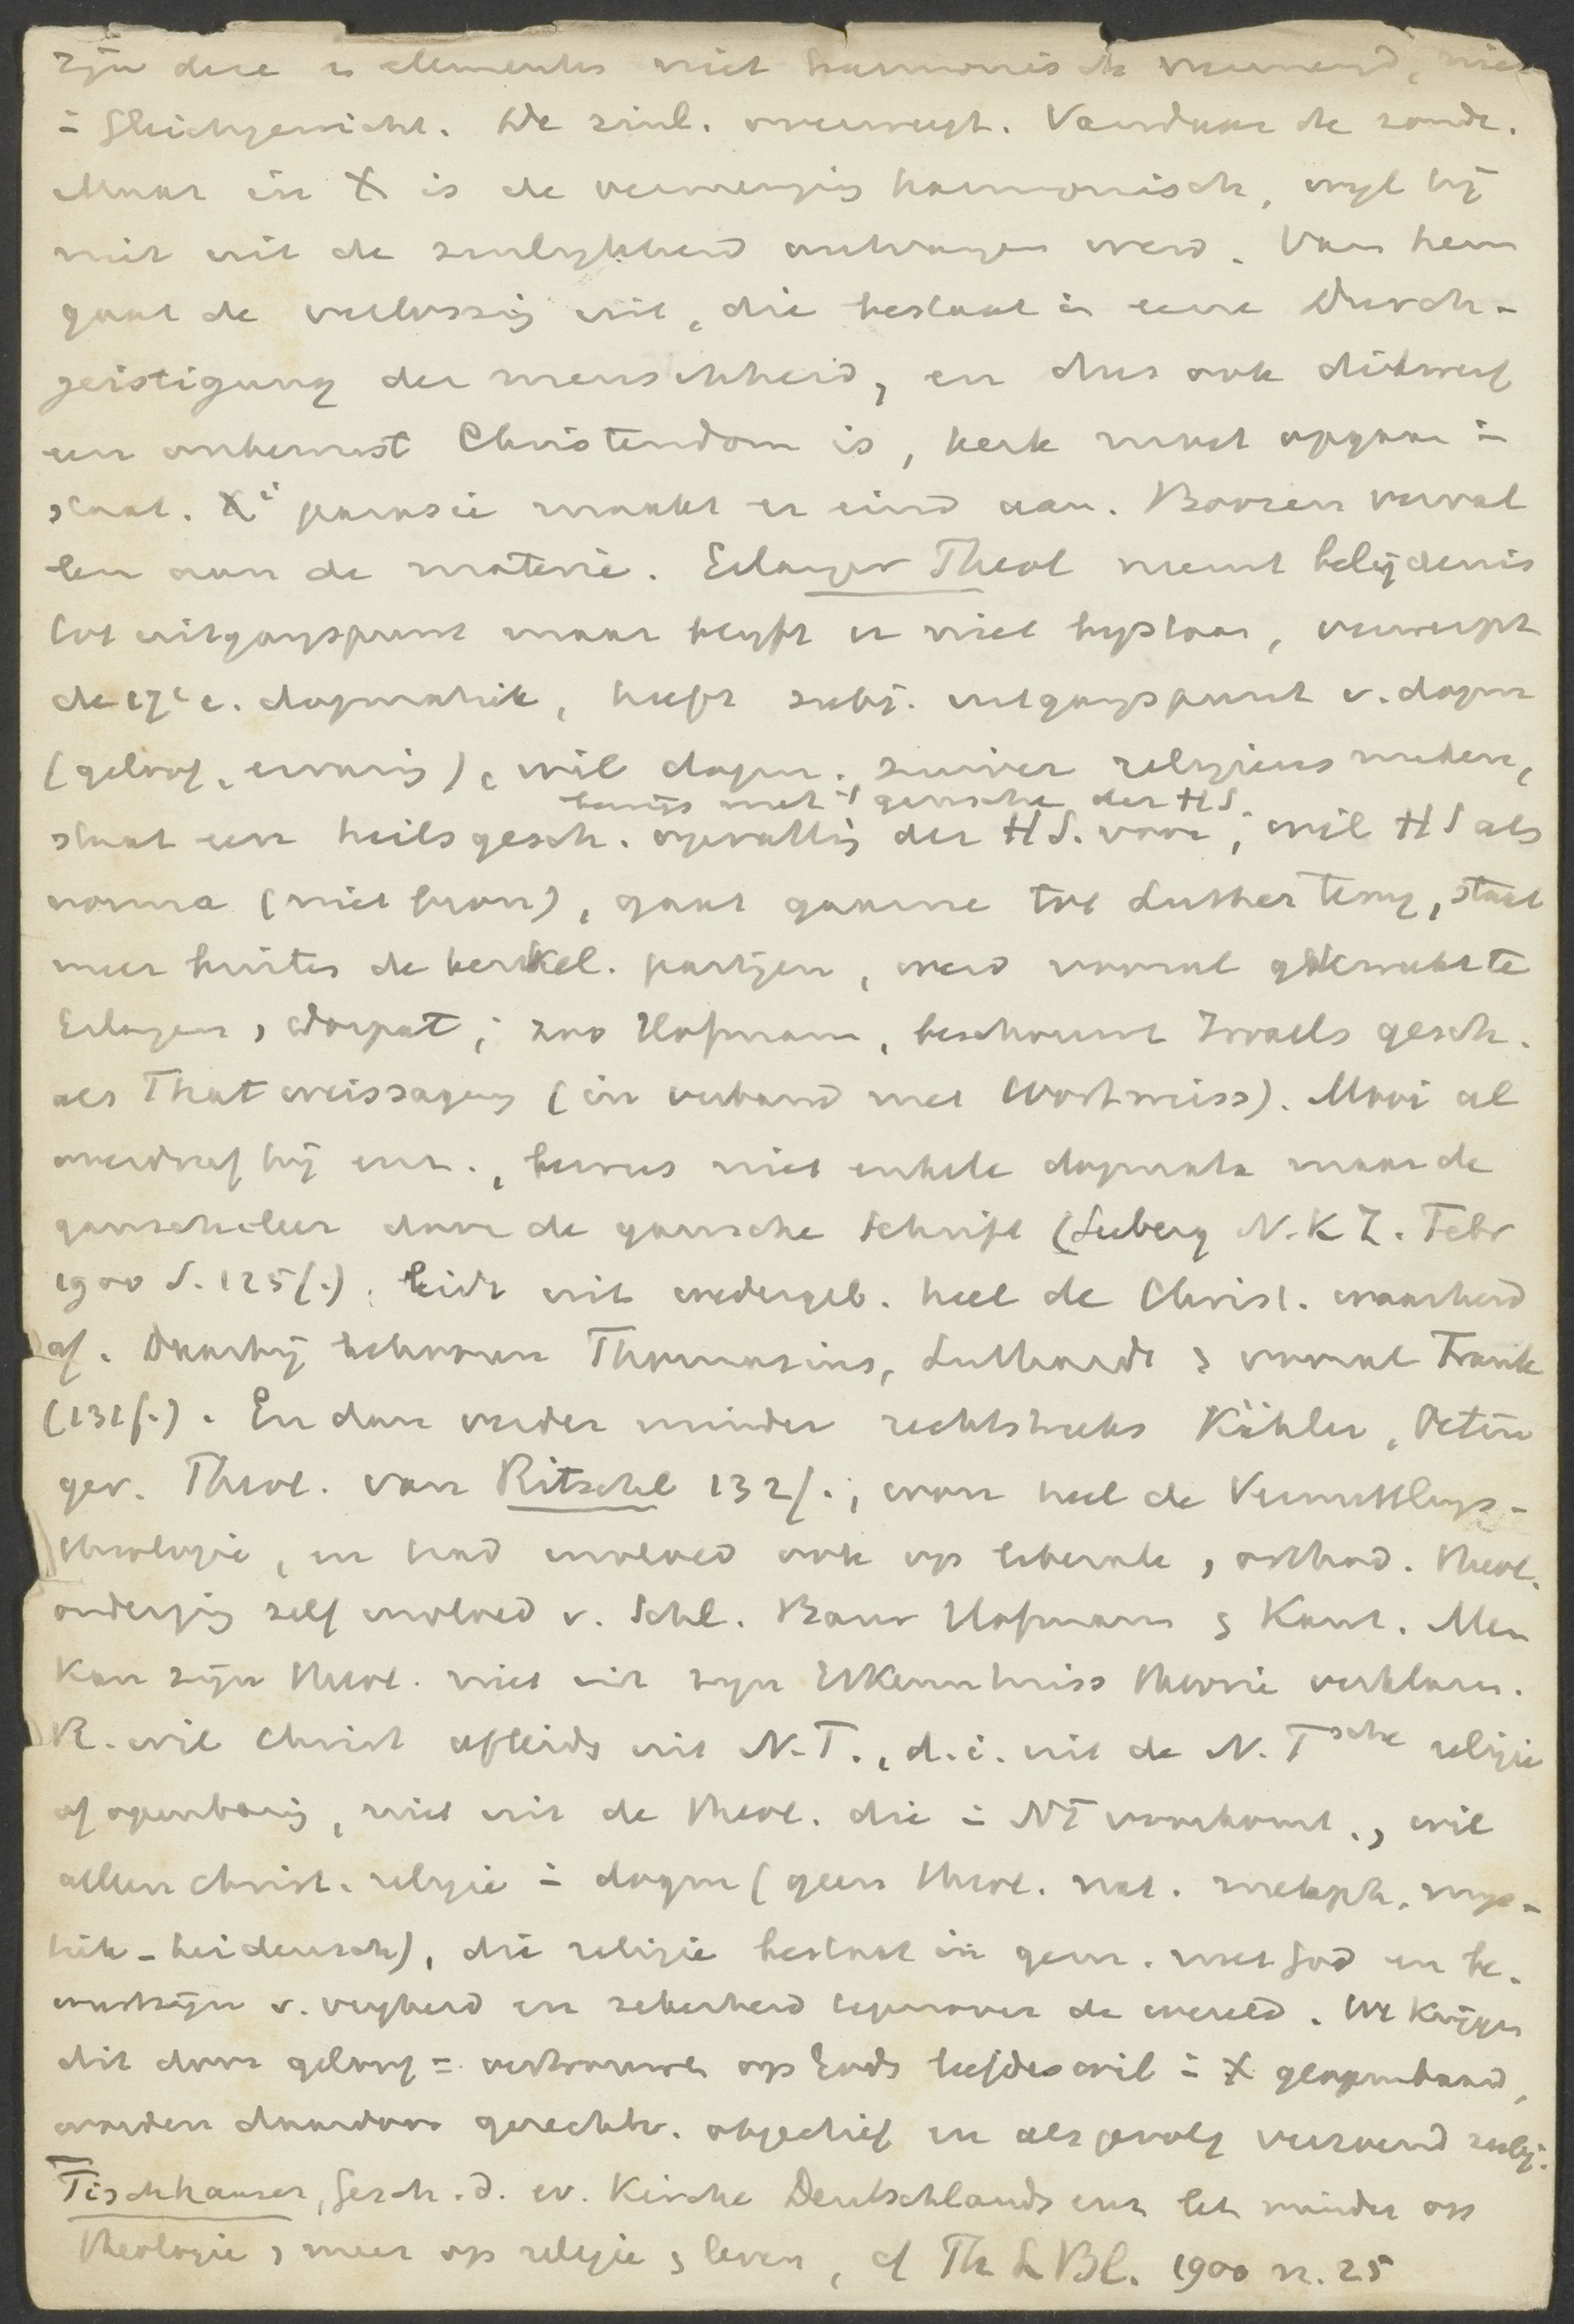 zijn deze 2 elementen niet harmonisch vereenigd, niet
in Gleichgewicht. De zinl. overweegt. Vandaar de zonde.
Maar in X is de vereeniging harmonisch, wijl hij
niet uit de zinlykheid ontvangen werd. Van hem
gaat de verlossing uit, die bestaat in eene Durch-
geistigung der menschheid, en dus ook dikwerf
een onbewust Christendom is, kerk moet opgaan in
staat. Xi parusie maakt er eind aan. Boozen verval
len aan de materie. Erlanger Theol neemt belijdenis
tot uitgangspunt maar blyft er niet bystaan, verwerpt
de 17e e. dogmatiek, heeft subj. uitgangspunt v. dogm
(geloof, ervaring), wil dogm. zuiver religieus maken,
bewijs met gansche der HS.
staat een heilsgesch. opvatting der HS. voor, wil HS als
norma (niet bron), gaat gaarne tot Luther terug, staat
meer buiten de kerkel. partijen, werd vooral gekweekt te
Erlangen, Dorpat; zoo Hofmann, beschouwt Israels gesch.
als Thatweissagung (in verband met Wortweiss). Mooi al
overdreef hij enz., bewees niet enkele dogmata maar de
gansche leer door de gansche Schrift (Seeberg N.K.Z. Febr
1900 S. 125f.). leidt uit wedergeb. heel de Christ. waarheid
af. Daarbij behooren Thomasius, Luthardt & vooral Frank
(131f.). En dan verder minder rechtstreeks Kähler, Oettin
ger. Theol. van Ritschl 132f.; won heel de Vermittlungs-
theologie, en had invloed ook op liberale, orthod. theol.
onderging zelf invloed v. Schl. Baur Hofmann & Kant. Men
kan zijn theol. niet uit zyn Erkenntniss theorie verklaren.
R. wil Christ afleiden uit N.T., d.i. uit de N.Tsche religie
of openbaring, niet uit de theol. die in NT voorkomt., wil
alleen christ. religie in dogm (geen theol. nat. metaph. mys-
tiek - heidensch), die religie bestaat in gem. met God en be-
wustzijn v. vryheid en zekerheid tegenover de wereld. We krijgen
dit door geloof = vertrouwen op Gods liefdeswil in X geopenbaard,
worden daardoor gerechtv. objectief en als gevolg verzoend subj.
Tischhauser, Gesch. d. ev. Kirche Deutschlands enz let minder op
theologie, meer op religie & leven, cf Th L Bl. 1900 n. 25